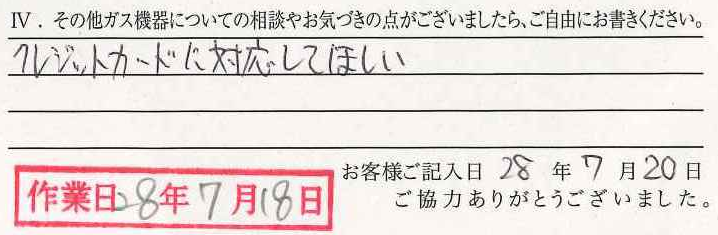 Ⅳ．その他ガス機器についての相談やお気づきの点がございましたら、ご自由にお書きください。
クレジットカードに対応してほしい
お客様ご記入日 28 年 7 月 20 日
作業日28年7月18日
ご協力ありがとうございました。